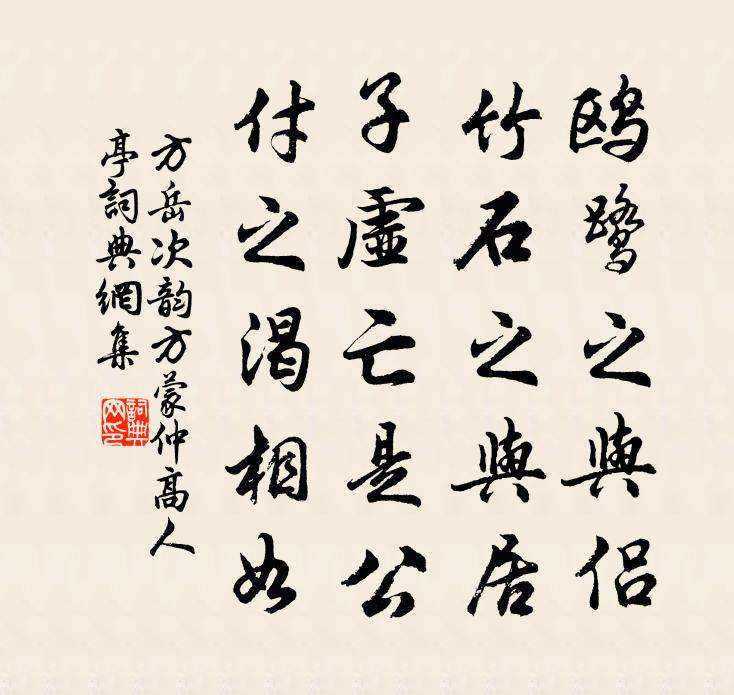 鸥鹭之與侣
竹石之與居
子虚亡是公
付之渴相如
方岳次韵方蒙仲高人
亭詞典網集
詞典網印